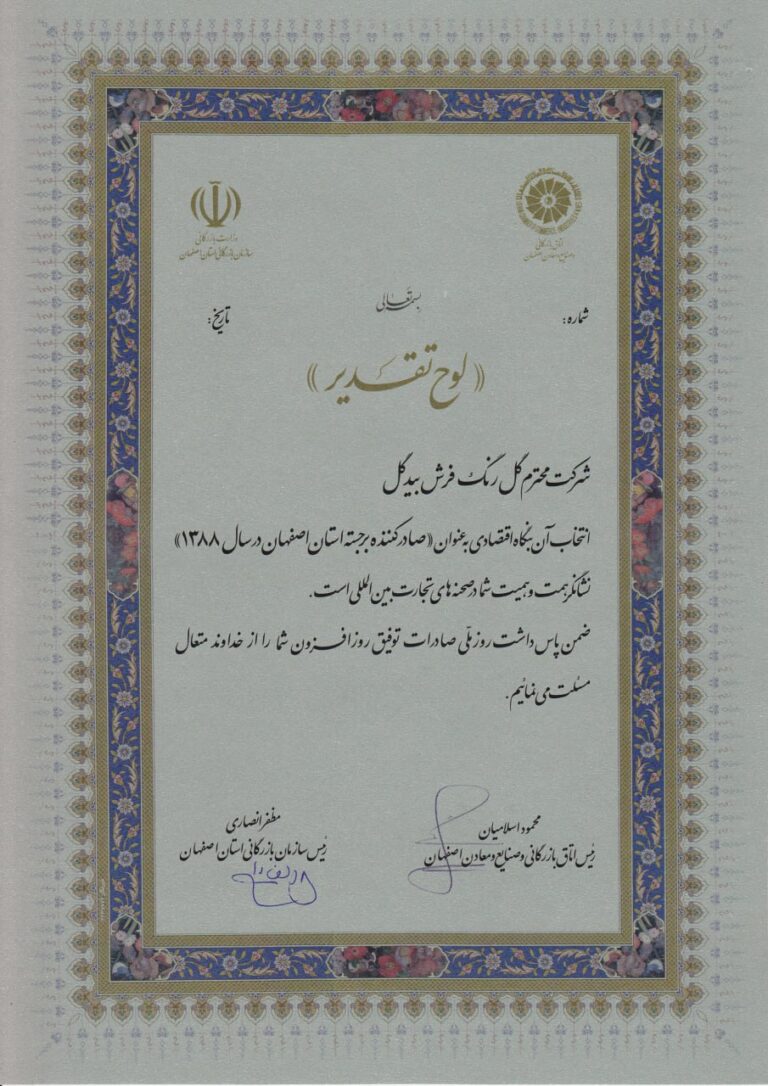 اتاق بازرگانی
و صنایع و معادن اصفهان
وزارت بازرگانی
سازمان بازرگانی استان اصفهان
بسمه تعالی
شماره:
تاریخ:
« لوح تقدیر »
شرکت محترم گل رنگ فرش بیدگل
انتخاب آن بنگاه اقتصادی به عنوان «صادر کننده برجسته استان اصفهان در سال ۱۳۸۸»
نشانگر همت و حمیت شما در صحنه های تجارت بین المللی است.
ضمن پاس داشت روز ملّی صادرات توفیق روز افزون شما را از خداوند متعال
مسئلت می نمائیم.
محمود اسلامیان
رئیس اتاق بازرگانی و صنایع و معادن اصفهان
مظفر انصاری
رئیس سازمان بازرگانی استان اصفهان